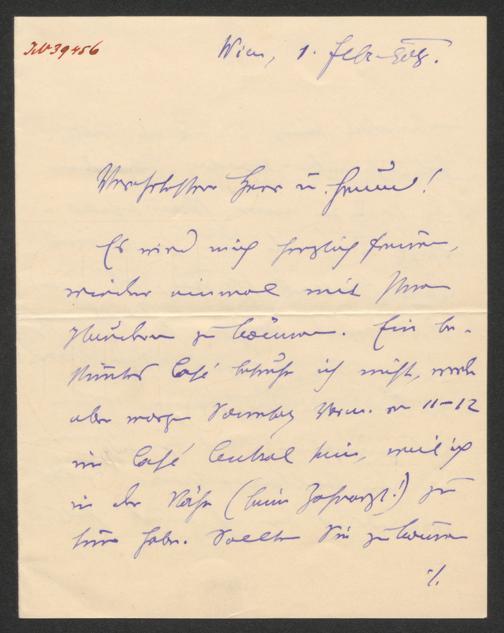 IN 39456
Wien, 1. Febr.
Verehrtester Herr u. Freund!
Es wird mich herzlich freuen,
wieder einmal mit Ihnen
plaudern zu können. Ein be-
stimmtes Café besuche ich nicht, werde
aber morgen Sonntag Vorm. von 11–12
im Café Central sein, weil ich
in der Nähe (beim Zahnarzt!) zu
tun habe. Sollten Sie zu
./.